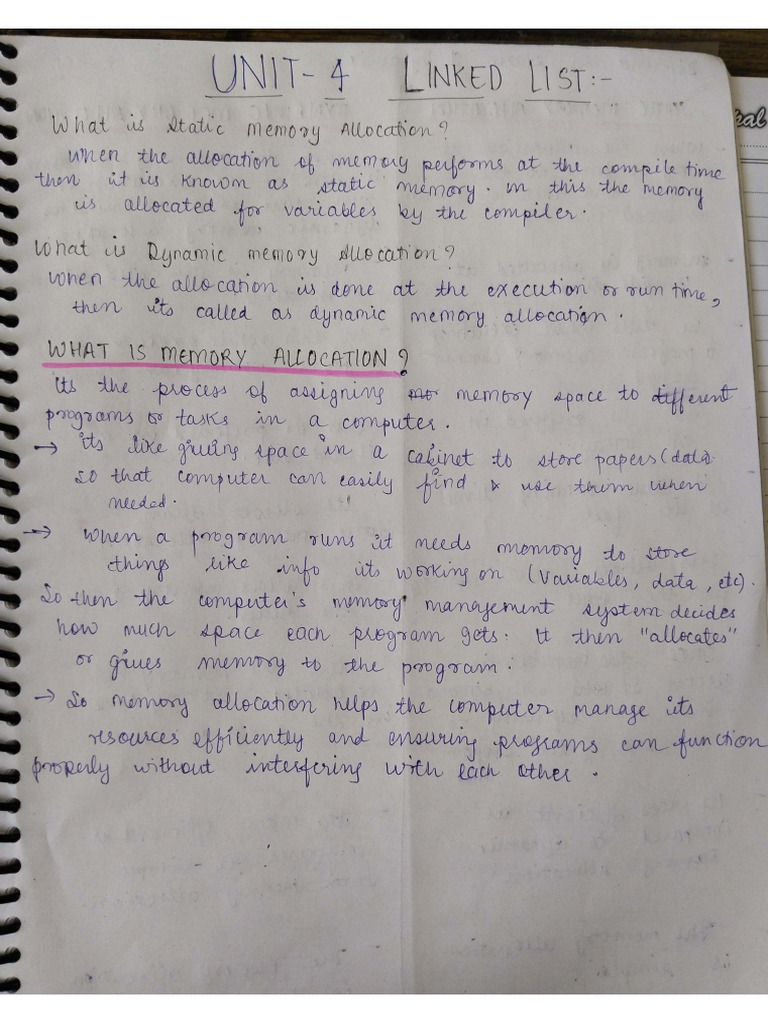 UNIT- 4 LINKED LIST:-
What is Static Memory Allocation?
When the allocation of memory performs at the compile time
then it is known as static memory. In this the memory
is allocated for variables by the compiler.
What is Dynamic memory Allocation?
When the allocation is done at the execution or run time,
then its called as dynamic memory allocation.
WHAT IS MEMORY ALLOCATION?
Its the process of assigning memory space to different
programs or tasks in a computer.
→ its like giving space in a cabinet to store papers (data)
so that computer can easily find & use them when
needed.
→ When a program runs it needs memory to store
things like info its working on (variables, data, etc).
So then the computer's memory management system decides
how much space each program gets. It then "allocates"
or gives memory to the program.
→ So memory allocation helps the computer manage its
resources efficiently and ensuring programs can function
properly without interfering with each other.